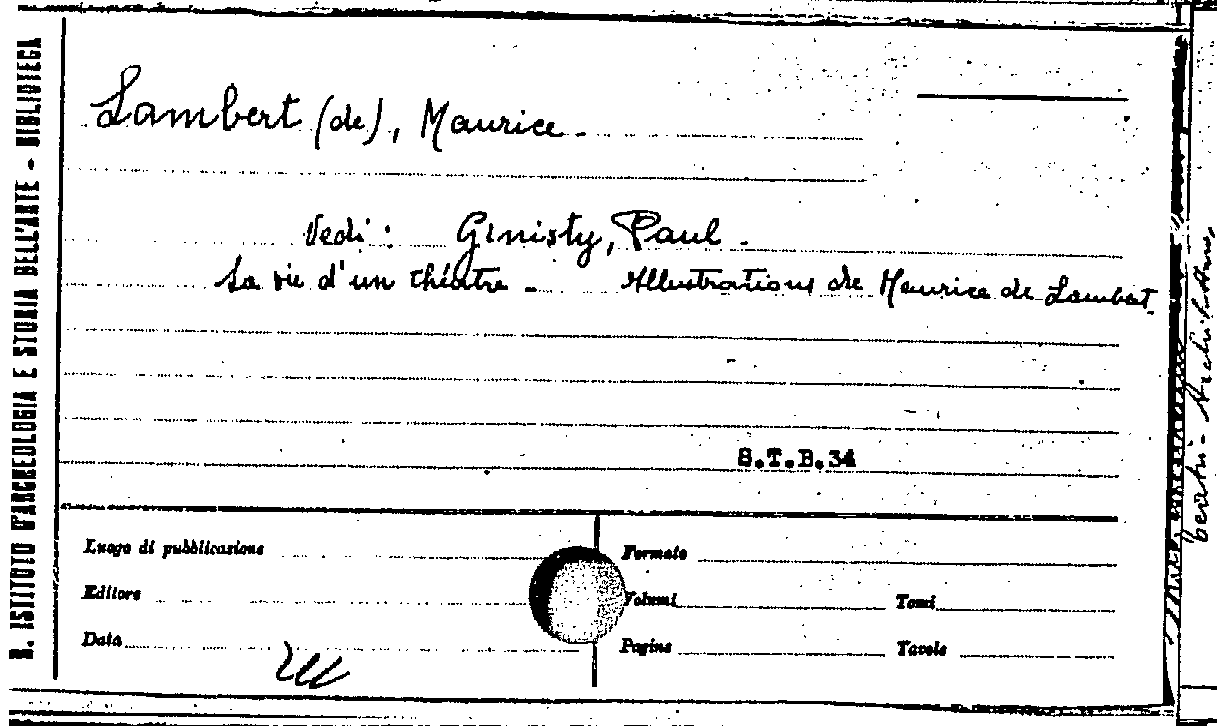 R. ISTITUTO D'ARCHEOLOGIA E STORIA DELL'ARTE - BIBLIOTECA
Lambert (de), Maurice.
Vedi: Ginisty, Paul.
La vie d'un théâtre. Illustrations de Maurice de Lambert.
S.T.B.34
Luogo di pubblicazione
Formato
Editore
Volumi
Tomi
Data
Pagine
Tavole